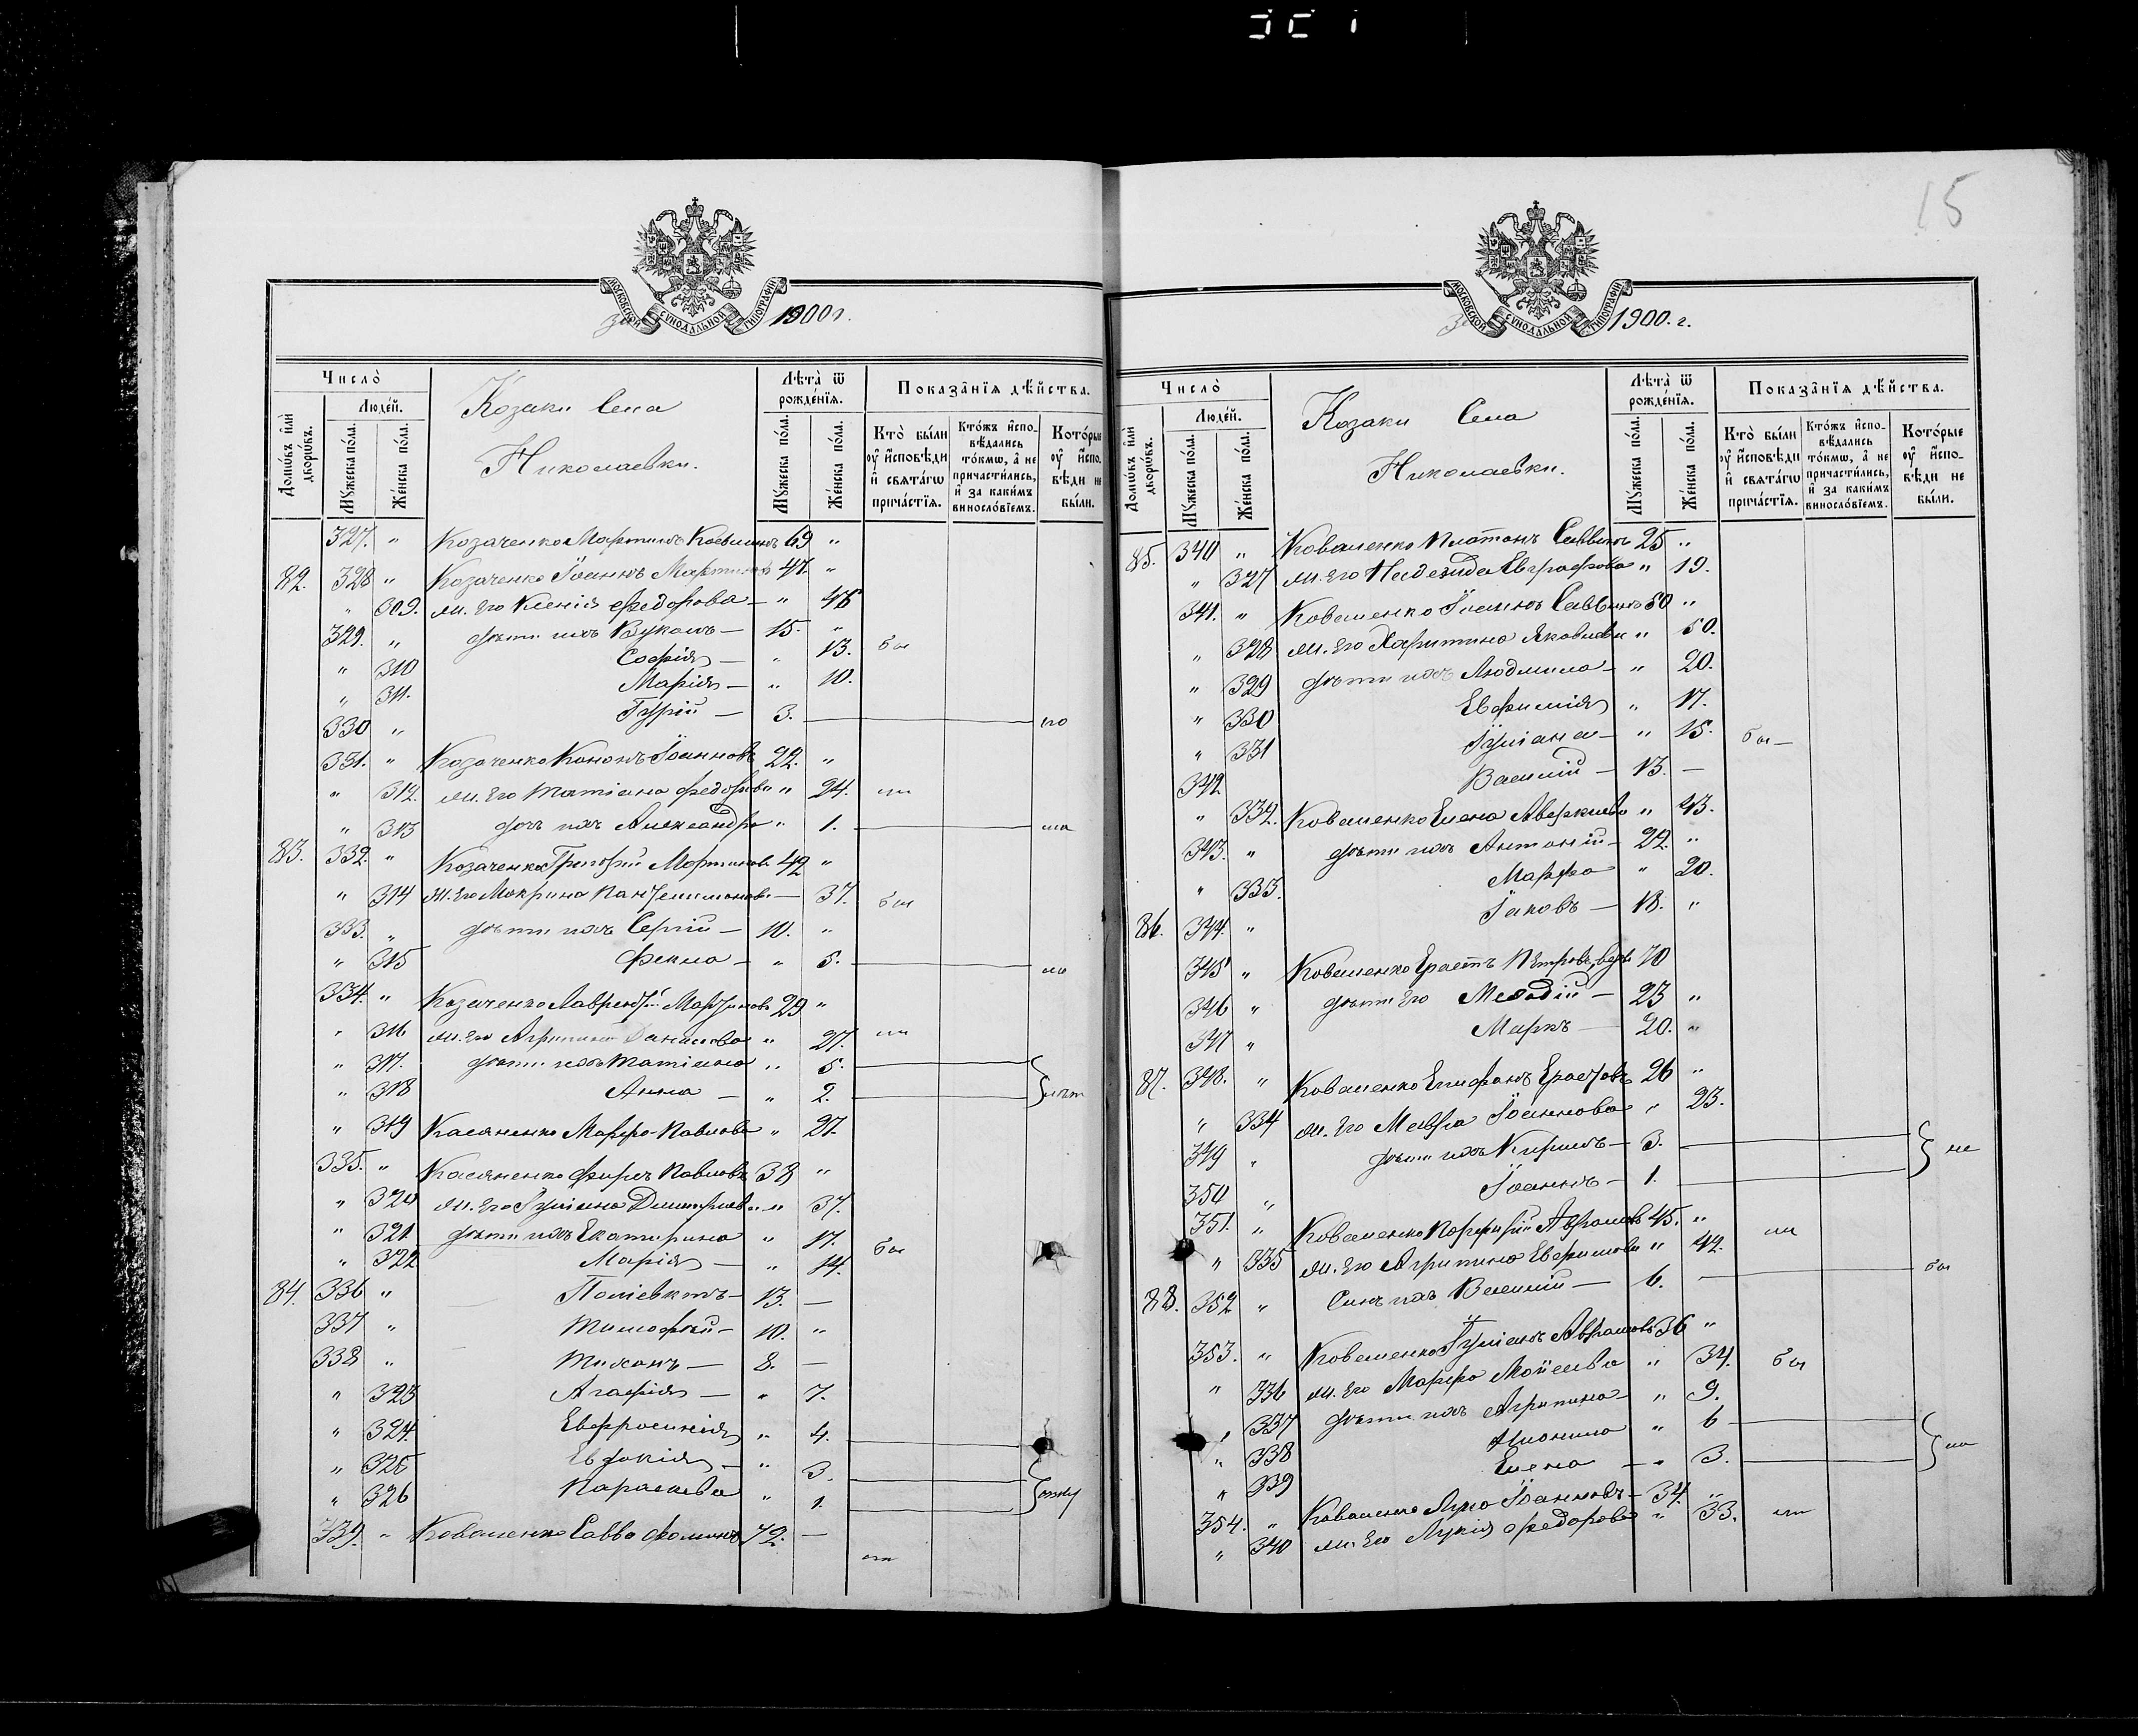 15
МОСКОВСКОЙ СУНОДАЛЬНОЙ ТИПОГРАФИИ
за 1900 г.
Число̀
Людéй.
Домѡ́въ и҆лѝ дворѡ́въ.
Мꙋ́жеска по́ла.
Же́нска по́ла.
Козаки Села
Николаевки.
Лѣ́та ѿ рождéнїѧ.
Мꙋ́жеска по́ла.
Же́нска по́ла.
Показа̑нїѧ дѣ́йства.
Кто̀ бы́ли оу҆ и҆сповѣ́ди и҆ свѧта́гѡ прича́стїѧ.
Кто́жъ и҆сповѣ́дались то́кмѡ, а҆ не причасти́лись, и҆ за каки́мъ винослóвїемъ.
Кото́рые оу҆ и҆сповѣ́ди не бы́ли.
327. " Козаченко Мартинъ 69 "
82. 328 " Козаченко Іоаннъ Мартиновъ 47. "
" 309. ж. его Ксенія Федорова — " 46
329. " дѣти ихъ Вуколъ — 15. "
" 310 Софія — " 13. бы
" 311. Марія — " 10.
330 " Гурій — 3. — но
331. " Козаченко Кононъ Іоанновъ 22. "
" 312. ж. его Татіана Федорова " 24. ли
" 313 дочь ихъ Александра " 1.
83. 332. " Козаченко Григорій Мартиновъ 42 "
" 314 ж. его Макрина Пантелимонова — 37. бы
333. " дѣти ихъ Сергій — 10. "
" 315 Фекла — " 5.
334. " Козаченко Лаврентій Мартиновъ 29 "
" 316 ж. его Агрипина Данилова " 27. ли
" 317. дѣти ихъ Татіана " 5.
" 318 Анна — " 2. лѣт
" 319 Касяненко Марфа Павлова " 27.
335. " Касяненко Фирсъ Павловъ 38 "
" 320 ж. его Іуліана Димитріева " 37.
" 321 дѣти ихъ Екатерина " 17. бы
" 322 Марія — " 14.
84. 336 " Поліевктъ — 13. —
337 " Тимофей — 10. "
338 " Тихонъ — 8. —
" 323 Агафія — " 7.
" 324. Евфросинія " 4.
" 325 Евдокія — " 3.
" 326 Параскева " 1.
339. " Коваленко Савва Фоминъ 72. —
ли
МОСКОВСКОЙ СУНОДАЛЬНОЙ ТИПОГРАФИИ
за 1900. г.
Число̀
Людéй.
Домѡ́въ и҆лѝ дворѡ́въ.
Мꙋ́жеска по́ла.
Же́нска по́ла.
Козаки Села
Николаевки.
Лѣ́та ѿ рождéнїѧ.
Мꙋ́жеска по́ла.
Же́нска по́ла.
Показа̑нїѧ дѣ́йства.
Кто̀ бы́ли оу҆ и҆сповѣ́ди и҆ свѧта́гѡ прича́стїѧ.
Кто́жъ и҆сповѣ́дались то́кмѡ, а҆ не причасти́лись, и҆ за каки́мъ винослóвїемъ.
Кото́рые оу҆ и҆сповѣ́ди не бы́ли.
85. 340 " Коваленко Платонъ Саввинъ 25 "
" 327 ж. его Надежда Евграфова " 19.
341. " Коваленко Іоаннъ Саввинъ 50 "
" 328 ж. его Харитина Яковлева " 50.
" 329 дѣти ихъ Людмила — " 20.
" 330 Евфимія " 17.
" 331 Іуліана — " 15. бы —
342 Василій — 13. —
" 332. Коваленко Елена Аверкиева " 43.
343. " дѣти ихъ Антоній — 22. "
" 333. Марфа " 20.
86. 344. " Іаковъ — 18. "
345 " Коваленко Ерастъ Петровъ, вдвъ 70
346 " дѣти его Меѳодій — 23 "
347 " Маркъ — 20. "
87. 348. " Коваленко Епифанъ Ерастовъ 26 "
" 334 ж. его Мавра Іоаннова " 23.
349 " дѣти ихъ Кирилъ — 3.
350 " Іоаннъ — 1. не
351. " Коваленко Порфирій Аврамовъ 45. "
" 335 ж. его Агрипина Евфимова " 42. ли
88. 352 " Сынъ ихъ Василій — 6. — бы
353. " Коваленко Іуліанъ Аврамовъ 36 "
" 336 ж. его Марфа Моисеева " 34. бы
" 337 дѣти ихъ Агрипина — " 9.
" 338 " 6
" 339 Елена — " 3.
354. " Коваленко Іоанновъ — 34. "
" 340 ж. его Лукія Федорова " 33. ли